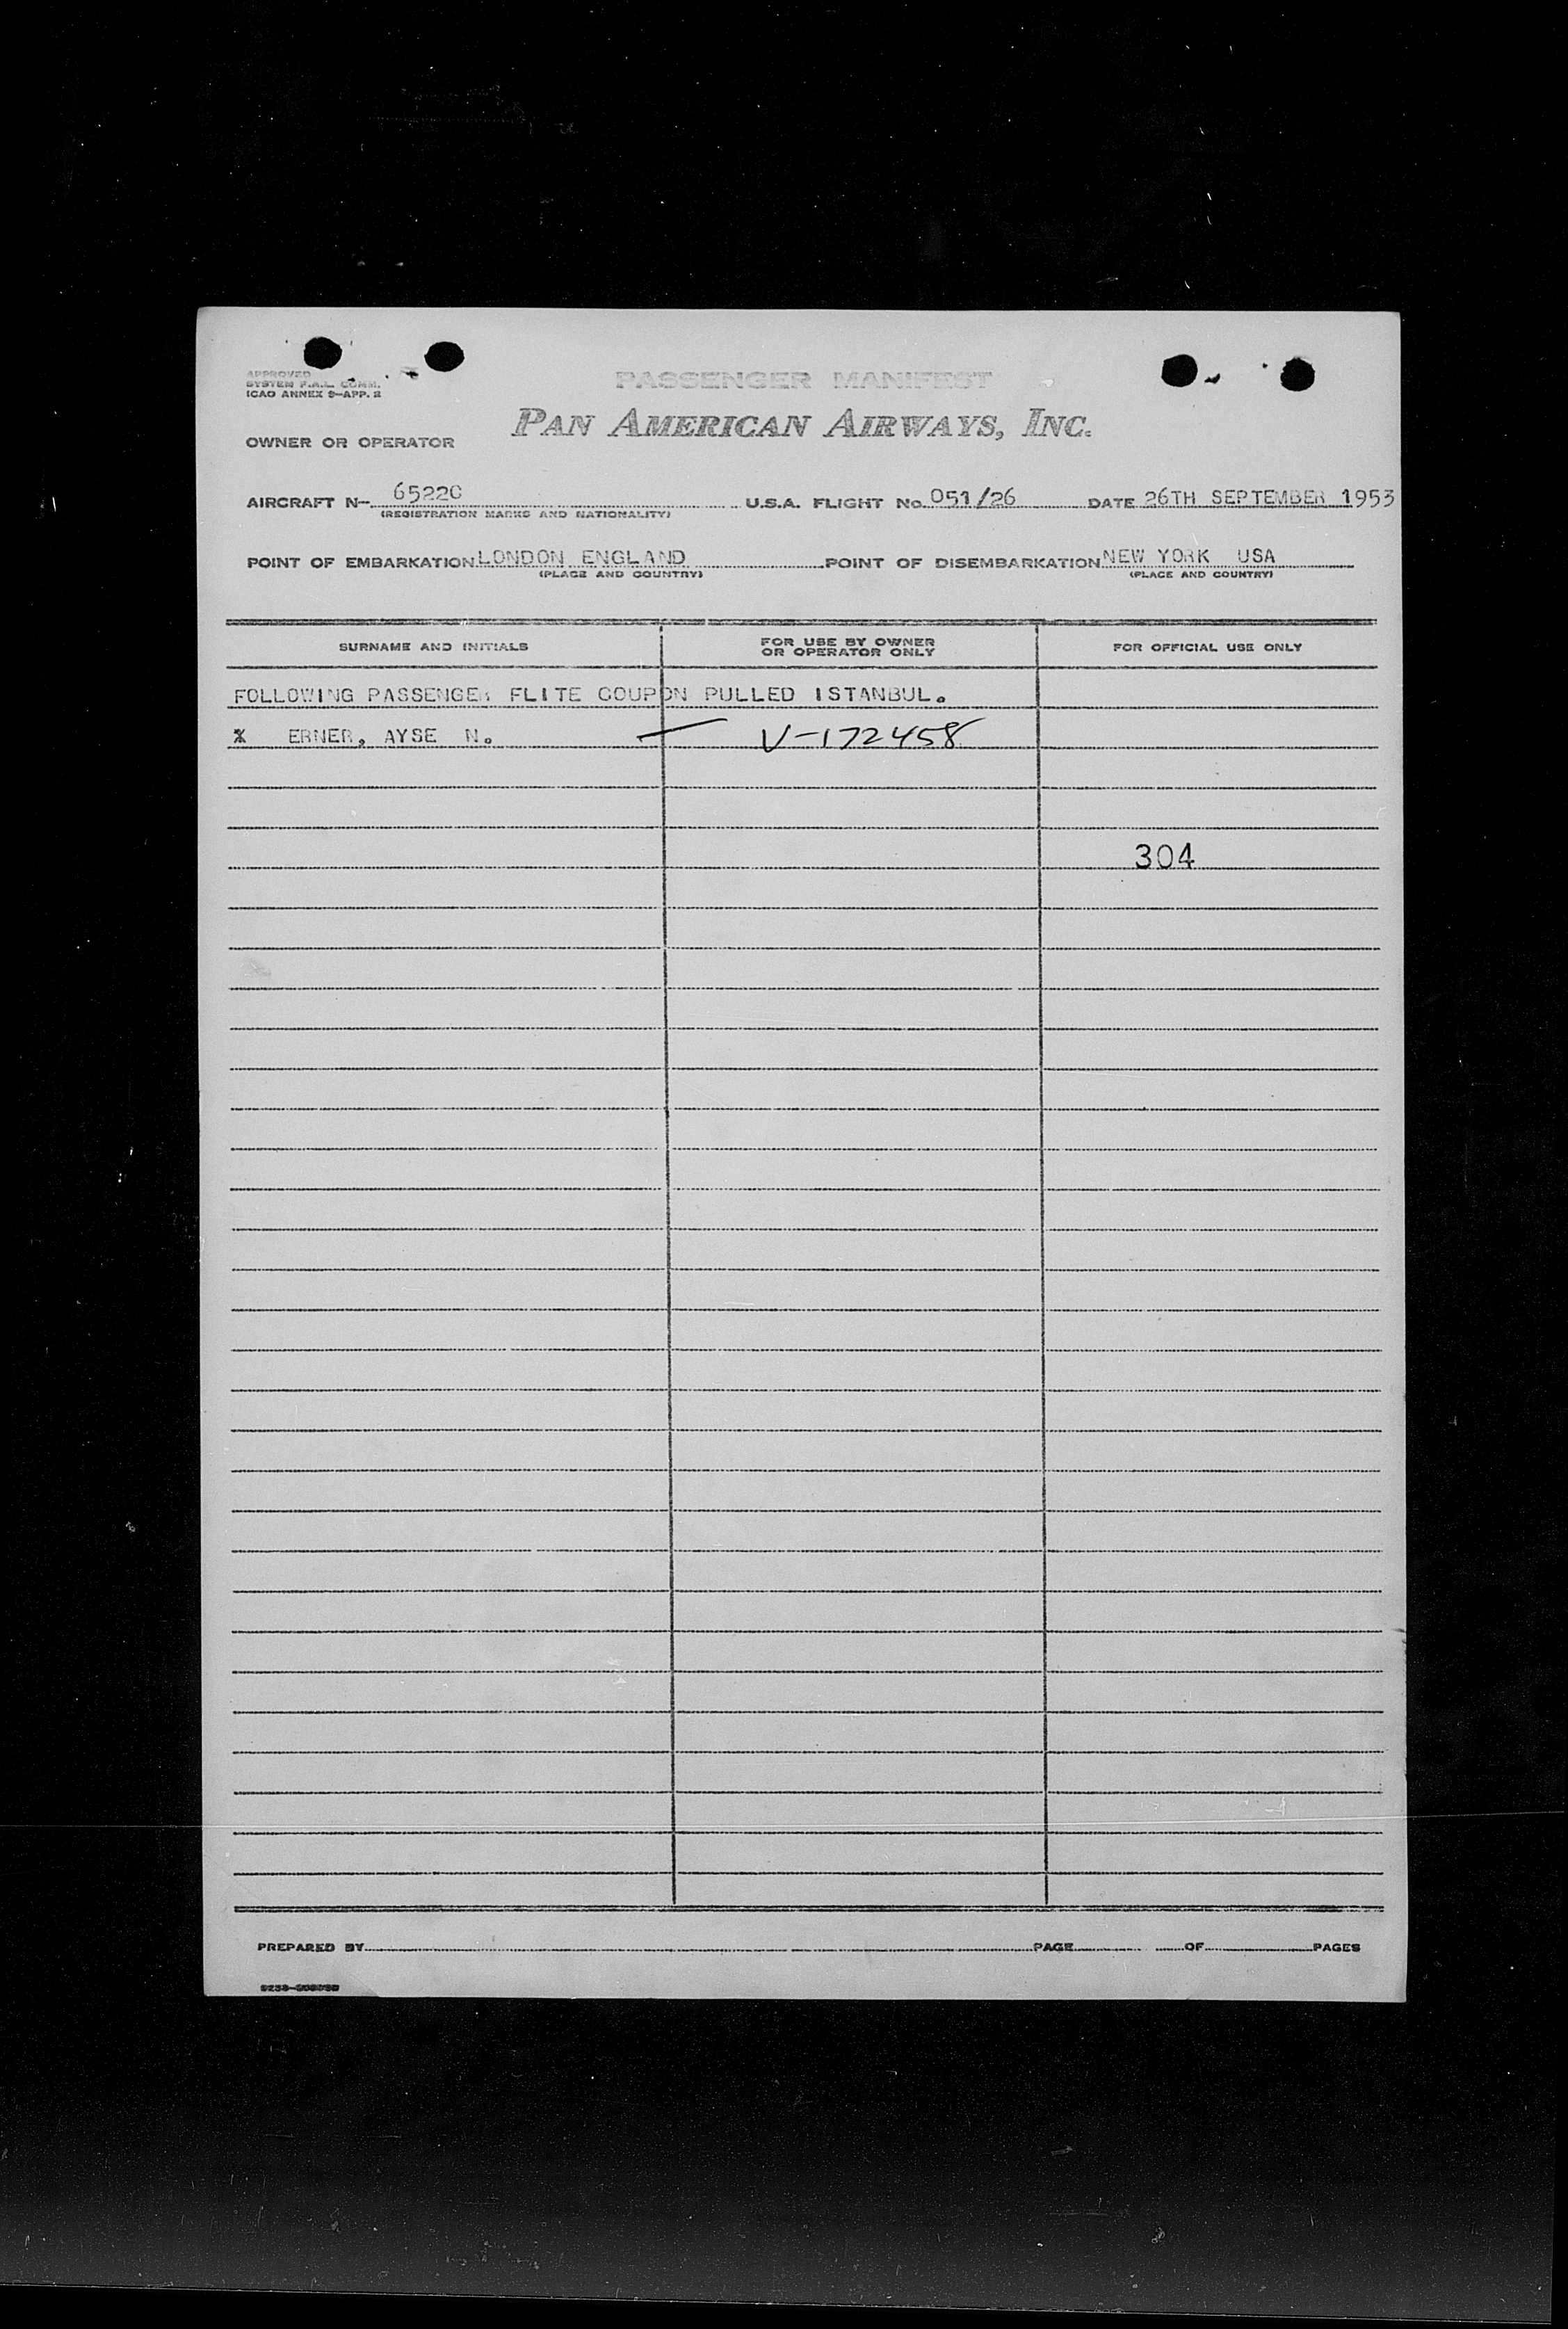 APPROVED
SYSTEM F.A.L. COMM.
ICAO ANNEX 9-APP. 2
PASSENGER MANIFEST
PAN AMERICAN AIRWAYS, INC.
OWNER OR OPERATOR
AIRCRAFT N- 6522C U.S.A. FLIGHT No. 051/26 DATE 26TH SEPTEMBER 1953
(REGISTRATION MARKS AND NATIONALITY)
POINT OF EMBARKATION LONDON ENGLAND POINT OF DISEMBARKATION NEW YORK USA
(PLACE AND COUNTRY) (PLACE AND COUNTRY)
SURNAME AND INITIALS FOR USE BY OWNER OR OPERATOR ONLY FOR OFFICIAL USE ONLY
FOLLOWING PASSENGER FLITE COUPON PULLED ISTANBUL.
% ERNER, AYSE N. — V-172458
304
PREPARED BY PAGE OF PAGES